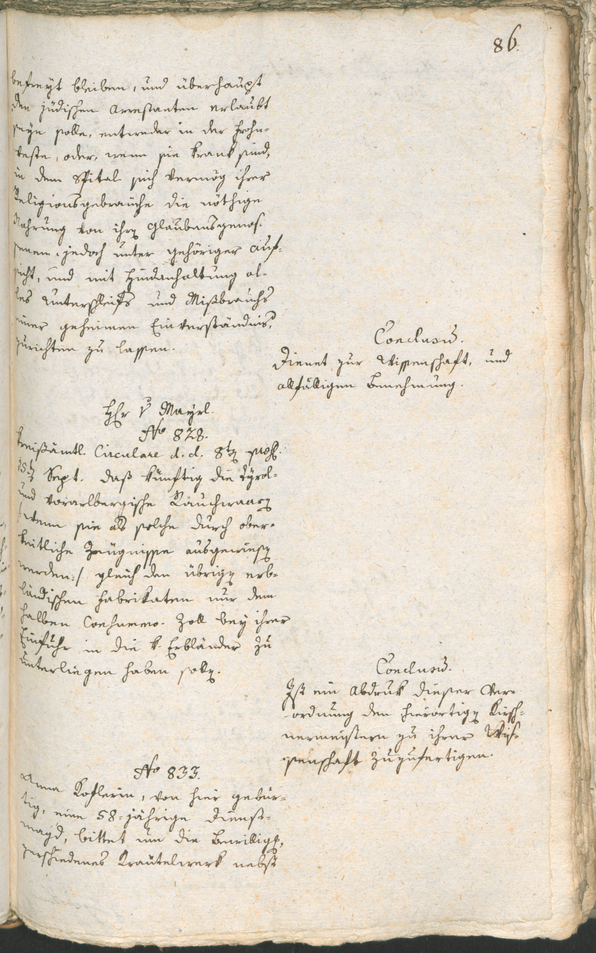 86.
befreyt bleiben, und überhaupt
den jüdischen Arrestanten erlaubt
seyn solle, entweder in der Frohn-
veste, oder, wenn sie krank sind,
in dem Spital sich vermög ihrer
Religionsgebräuche die nöthige
Nahrung von ihrn Glaubensgenos-
senen, jedoch unter gehöriger Auf-
sicht, und mit Hindanhaltung al-
les Unterschleifs und Mißbrauchs
einer geheimen Einverständniß,
zurichten zu lassen.
Conclusum.
Dienet zur Wissenschaft, und
allfälligen Benehmung.
Hr v Mayrl.
No 828.
Kreißämtl. Circulare d. d. 8tn
15tn Sept. daß künftig die Tyrol-
und vorarlbergische Rauchwaarn
/: wenn sie als solche durch ober-
keitliche Zeugnisse ausgewiesn
werden :/ gleich den übrign erb-
ländischen Fabrikaten nur dem
halben Zoll bey ihrer
Einfuhr in die k Erbländer zu
unterliegen haben solln.
Conclusum.
Ist ein Abdruk dieser Ver-
ordnung den hierortign Kirsch-
nermeistern zu ihrer Wis-
senschaft zuzufertigen.
No 833.
Anna Koflerin, von hier gebür-
tig, eine 58-jährige Dienst-
magd, bittet um die Bewillig,
verschiedenes Kräutelwerk nebst